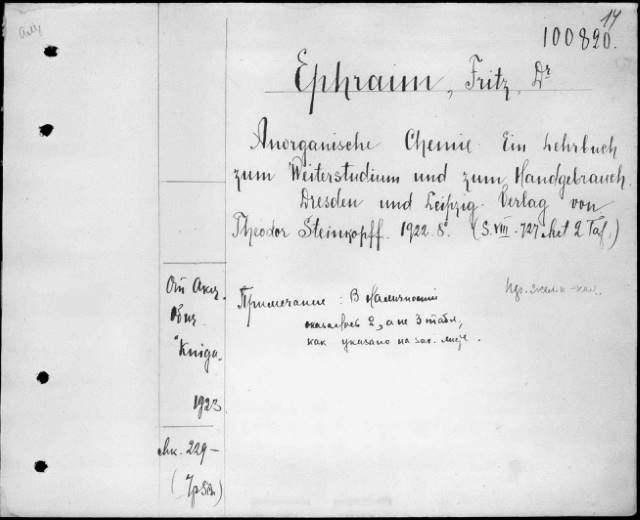 14
100820.
Ephraim, Fritz, Dr
Anorganische Chemie. Ein Lehrbuch
zum Weiterstudium und zum Handgebrauch.
Dresden und Leipzig. Verlag von
Theodor Steinkopff. 1922. 8°. (S. VIII - 727 mit 2 Taf.)
От Акц.
Общ.
"Kniga"
1923
Мк. 229 -
Примечание: В наличности
оказалось 2, а не 3 табл.,
как указано на заг. листе.